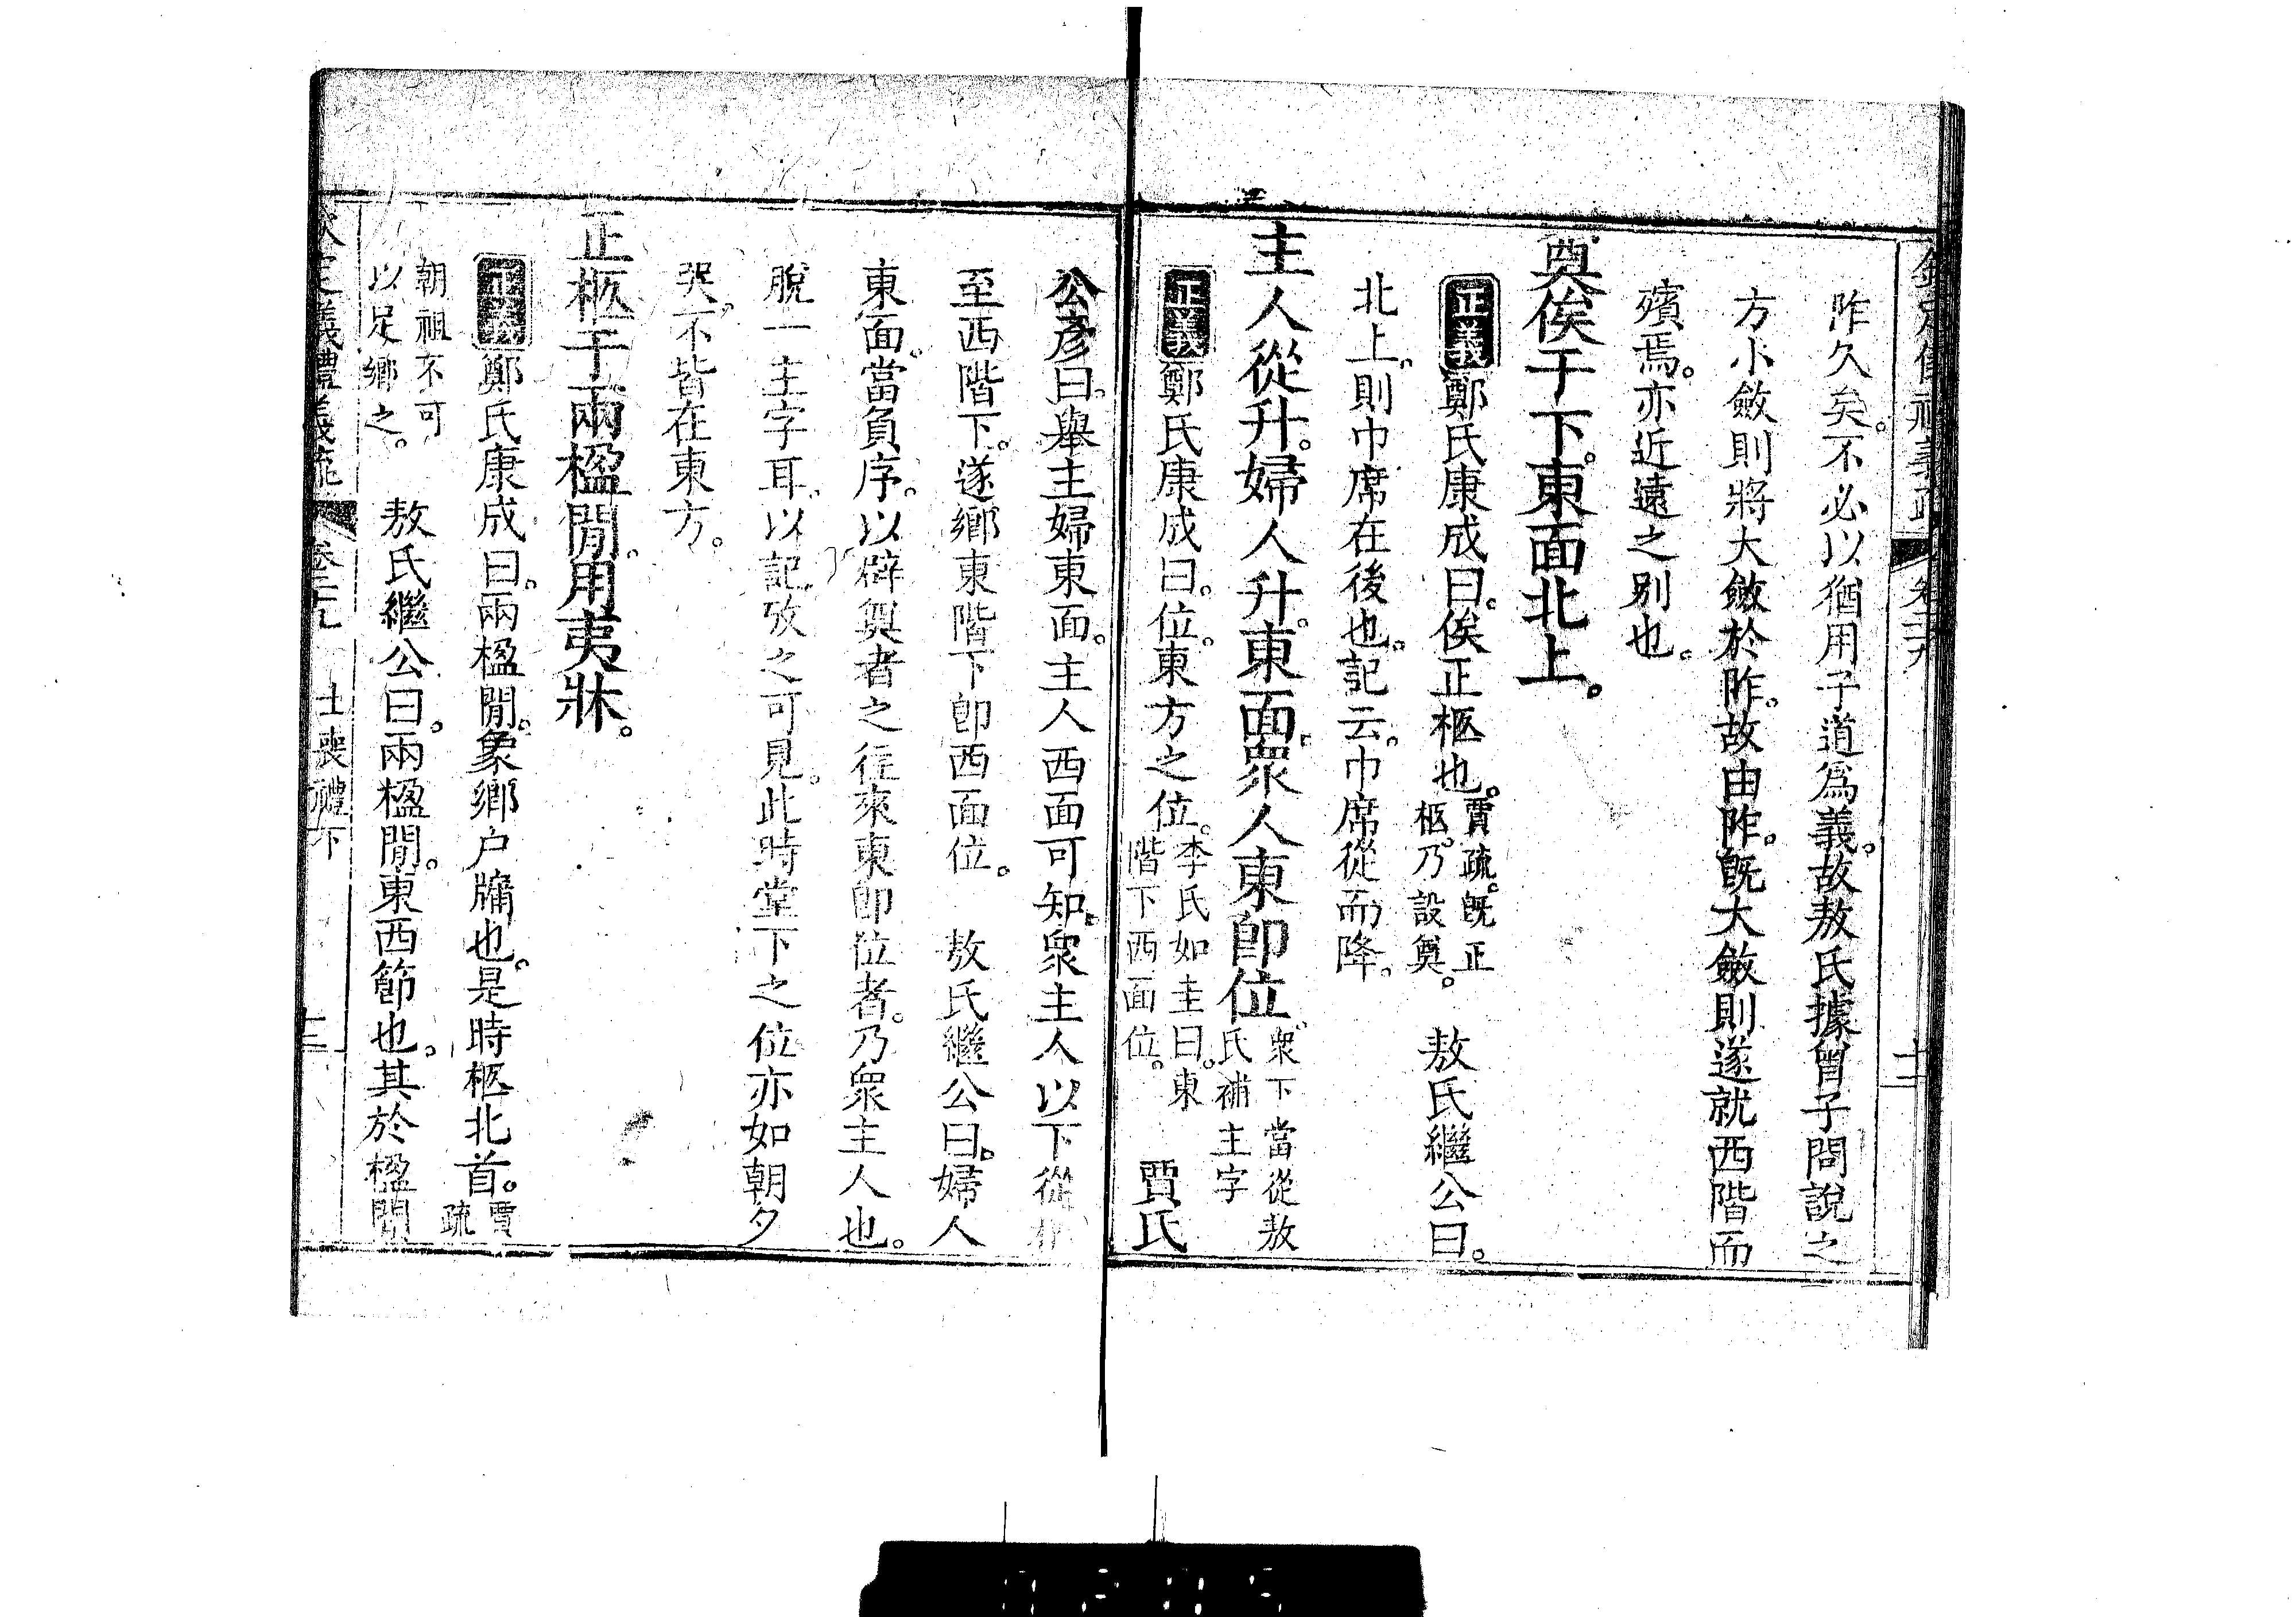 欽定儀禮義疏 卷二十九 十二
阼久矣。不必以猶用子道爲義。故敖氏據曾子問說之
方小斂則將大斂於阼。故由阼。旣大斂則遂就西階而
殯焉。亦近遠之別也。
奠俟于下。東面北上。
正義 鄭氏康成曰。俟正柩也。 賈疏。旣正柩。乃設奠。 敖氏繼公曰。
北上。則巾席在後也。記云。巾席從而降。
主人從升。婦人升。東面。衆人東卽位。 衆下當從敖氏補主字
正義 鄭氏康成曰。位。東方之位。 李氏如圭曰。東階下西面位。 賈氏
公彥曰。舉主婦東面。主人西面可知。衆主人以下從
至西階下。遂鄉東階下卽西面位。 敖氏繼公曰。婦人
東面。當負序。以辟奠者之往來東卽位者。乃衆主人也。
脫一主字耳。以記攷之可見。此時堂下之位亦如朝夕
哭。不皆在東方。
正柩于兩楹閒。用夷牀。
正義 鄭氏康成曰。兩楹閒。象鄉户牖也。是時柩北首。 賈疏
朝祖不可以足鄉之。 敖氏繼公曰。兩楹閒。東西節也。其於楹閒
欽定儀禮義疏 卷二十九 士喪禮下 十二